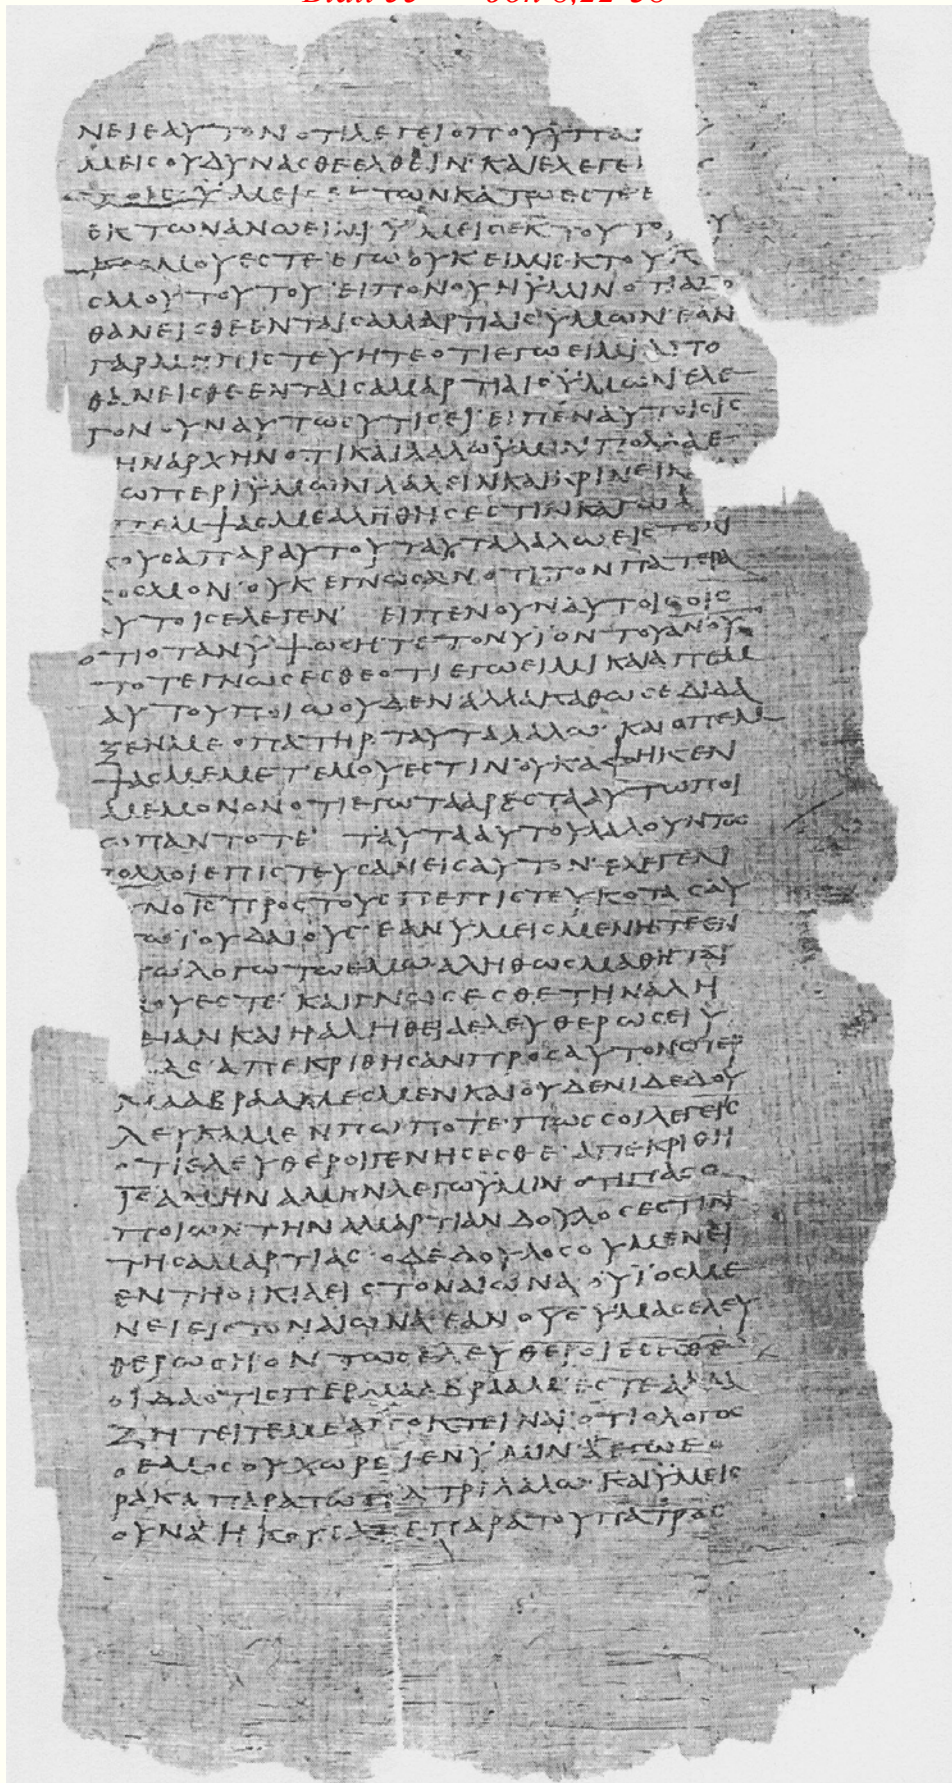 Blatt 55 Joh 8,22-38
ΝΕΙ ΕΑΥΤΟΝ ΟΤΙ ΛΕΓΕΙ ΟΠΟΥ
ΜΕΙϹ ΟΥ ΔΥΝΑϹΘΕ ΕΛΘΕΙΝ· ΚΑΙ ΕΛΕΓΕ
ΫΜΕΙϹ ΤΩΝ ΚΑΤΩ ΕϹΤΕ Ε
ΕΚ ΤΩΝ ΑΝΩ ΕΙΜΙ ΫΜΕΙϹ ΕΚ ΤΟΥΤΟΥ
ΚΟϹΜΟΥ ΕϹΤΕ ΕΓΩ ΟΥΚ ΕΙΜΙ ΕΚ ΤΟΥ Κ
ϹΜΟΥ ΤΟΥΤΟΥ· ΕΙΠΟΝ ΟΥΝ ΫΜΙΝ ΟΤΙ ΑΠΟ
ΘΑΝΕΙϹΘΕ ΕΝ ΤΑΙϹ ΑΜΑΡΤΙΑΙϹ ΫΜΩΝ· ΕΑΝ
ΓΑΡ ΜΗ ΠΙϹΤΕΥΗΤΕ ΟΤΙ ΕΓΩ ΕΙΜΙ ΑΠΟ
ΘΑΝΕΙϹΘΕ ΕΝ ΤΑΙϹ ΑΜΑΡΤΙΑΙϹ ΫΜΩΝ ΕΛΕ
ΓΟΝ ΟΥΝ ΑΥΤΩ ϹΥ ΤΙϹ ΕΙ· ΕΙΠΕΝ ΑΥΤΟΙϹ ΙϹ
ΗΝ ΑΡΧΗΝ ΟΤΙ ΚΑΙ ΛΑΛΩ ΫΜΙΝ· ΠΟΛΛΑ Ε
Ω ΠΕΡΙ ΫΜΩΝ ΛΑΛΕΙΝ ΚΑΙ ΚΡΙΝΕΙΝ
ΠΕΜΨΑϹ ΜΕ ΑΛΗΘΗϹ ΕϹΤΙΝ ΚΑΓΩ Α
ΚΟΥϹΑ ΠΑΡ ΑΥΤΟΥ ΤΑΥΤΑ ΛΑΛΩ ΕΙϹ ΤΟΝ
ΚΟϹΜΟΝ· ΟΥΚ ΕΓΝΩϹΑΝ ΟΤΙ ΤΟΝ ΠΑΤΕΡΑ
ΑΥΤΟΙϹ ΕΛΕΓΕΝ· ΕΙΠΕΝ ΟΥΝ ΑΥΤΟΙϹ Ο ΙϹ
ΟΤΙ ΟΤΑΝ ΥΨΩϹΗΤΕ ΤΟΝ ΥΙΟΝ ΤΟΥ ΑΝΟΥ
ΤΟΤΕ ΓΝΩϹΕϹΘΕ ΟΤΙ ΕΓΩ ΕΙΜΙ ΚΑΙ ΑΠ ΕΜ
ΑΥΤΟΥ ΠΟΙΩ ΟΥΔΕΝ ΑΛΛΑ ΚΑΘΩϹ ΕΔΙΔΑ
ΞΕΝ ΜΕ Ο ΠΑΤΗΡ· ΤΑΥΤΑ ΛΑΛΩ· ΚΑΙ Ο ΠΕΜ
ΨΑϹ ΜΕ ΜΕΤ ΕΜΟΥ ΕϹΤΙΝ· ΟΥΚ ΑΦΗΚΕΝ
ΜΕ ΜΟΝΟΝ ΟΤΙ ΕΓΩ ΤΑ ΑΡΕϹΤΑ ΑΥΤΩ ΠΟΙ
Ω ΠΑΝΤΟΤΕ· ΤΑΥΤΑ ΑΥΤΟΥ ΛΑΛΟΥΝΤΟϹ
ΠΟΛΛΟΙ ΕΠΙϹΤΕΥϹΑΝ ΕΙϹ ΑΥΤΟΝ· ΕΛΕΓΕΝ
ΥΝ Ο ΙϹ ΠΡΟϹ ΤΟΥϹ ΠΕΠΙϹΤΕΥΚΟΤΑϹ ΑΥ
ΤΩ ΙΟΥΔΑΙΟΥϹ· ΕΑΝ ΥΜΕΙϹ ΜΕΝΗΤΕ ΕΝ
ΤΩ ΛΟΓΩ ΤΩ ΕΜΩ· ΑΛΗΘΩϹ ΜΑΘΗΤΑΙ
ΜΟΥ ΕϹΤΕ· ΚΑΙ ΓΝΩϹΕϹΘΕ ΤΗΝ ΑΛΗ
ΘΕΙΑΝ ΚΑΙ Η ΑΛΗΘΕΙΑ ΕΛΕΥΘΕΡΩϹΕΙ Υ
ΑϹ· ΑΠΕΚΡΙΘΗϹΑΝ ΠΡΟϹ ΑΥΤΟΝ ϹΠΕΡ
ΜΑ ΑΒΡΑΑΜ ΕϹΜΕΝ ΚΑΙ ΟΥΔΕΝΙ ΔΕΔΟΥ
ΛΕΥΚΑΜΕΝ ΠΩΠΟΤΕ· ΠΩϹ ϹΟΙ ΛΕΓΕΙϹ
ΟΤΙ ΕΛΕΥΘΕΡΟΙ ΓΕΝΗϹΕϹΘΕ· ΑΠΕΚΡΙΘΗ
ΙϹ ΑΜΗΝ ΑΜΗΝ ΛΕΓΩ ΫΜΙΝ ΟΤΙ ΠΑϹ Ο
ΠΟΙΩΝ ΤΗΝ ΑΜΑΡΤΙΑΝ ΔΟΥΛΟϹ ΕϹΤΙΝ
ΤΗϹ ΑΜΑΡΤΙΑϹ· Ο ΔΕ ΔΟΥΛΟϹ ΟΥ ΜΕΝΕΙ
ΕΝ ΤΗ ΟΙΚΙΑ ΕΙϹ ΤΟΝ ΑΙΩΝΑ· Ο ΥΙΟϹ ΜΕ
ΝΕΙ ΕΙϹ ΤΟΝ ΑΙΩΝΑ· ΕΑΝ Ο ΥϹ ΥΜΑϹ ΕΛΕΥ
ΘΕΡΩϹΗ ΟΝΤΩϹ ΕΛΕΥΘΕΡΟΙ ΕϹΕϹΘΕ
ΟΙΔΑ ΟΤΙ ϹΠΕΡΜΑ ΑΒΡΑΑΜ ΕϹΤΕ ΑΛΛΑ
ΖΗΤΕΙΤΕ ΜΕ ΑΠΟΚΤΕΙΝΑΙ· ΟΤΙ Ο ΛΟΓΟϹ
Ο ΕΜΟϹ ΟΥ ΧΩΡΕΙ ΕΝ ΥΜΙΝ· Α ΕΓΩ ΕΟ
ΡΑΚΑ ΠΑΡΑ ΤΩ ΠΑΤΡΙ ΛΑΛΩ· ΚΑΙ ΫΜΕΙϹ
ΟΥΝ Α ΗΚΟΥϹΑΤΕ ΠΑΡΑ ΤΟΥ ΠΑΤΡΟϹ